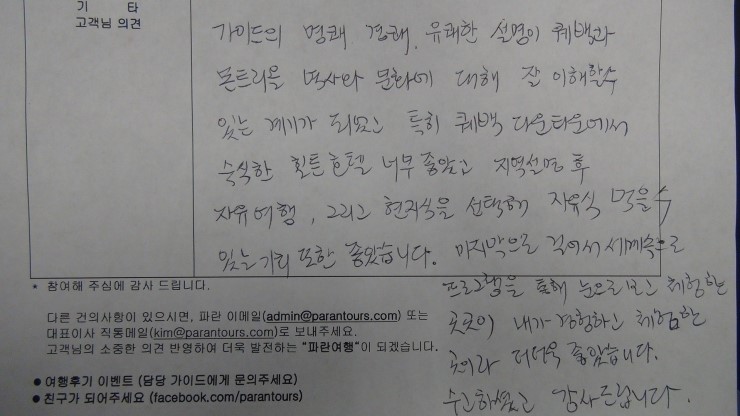 기 타
고객님 의견
가이드의 명쾌 경쾌, 유쾌한 설명이 퀘백과
몬트리올 역사와 문화에 대해 잘 이해할수
있는 계기가 되었고 특히 퀘백 다운타운에서
숙식한 힐튼호텔 너무 좋았고 지역설명 후
자유여행, 그리고 현지식을 선택해 자유식 먹을수
있는거리 또한 좋았습니다. 마지막으로 걸어서 세계속으로
프로그램을 통해 눈으로 보고 체험한
곳곳이 내가 경험하고 체험한
곳이라 더더욱 좋았습니다.
수고하셨고 감사드립니다.
* 참여해 주심에 감사 드립니다.
다른 건의사항이 있으시면, 파란 이메일(admin@parantours.com) 또는
대표이사 직통메일(kim@parantours.com)로 보내주세요.
고객님의 소중한 의견 반영하여 더욱 발전하는 "파란여행"이 되겠습니다.
● 여행후기 이벤트 (담당 가이드에게 문의주세요)
● 친구가 되어주세요 (facebook.com/parantours)